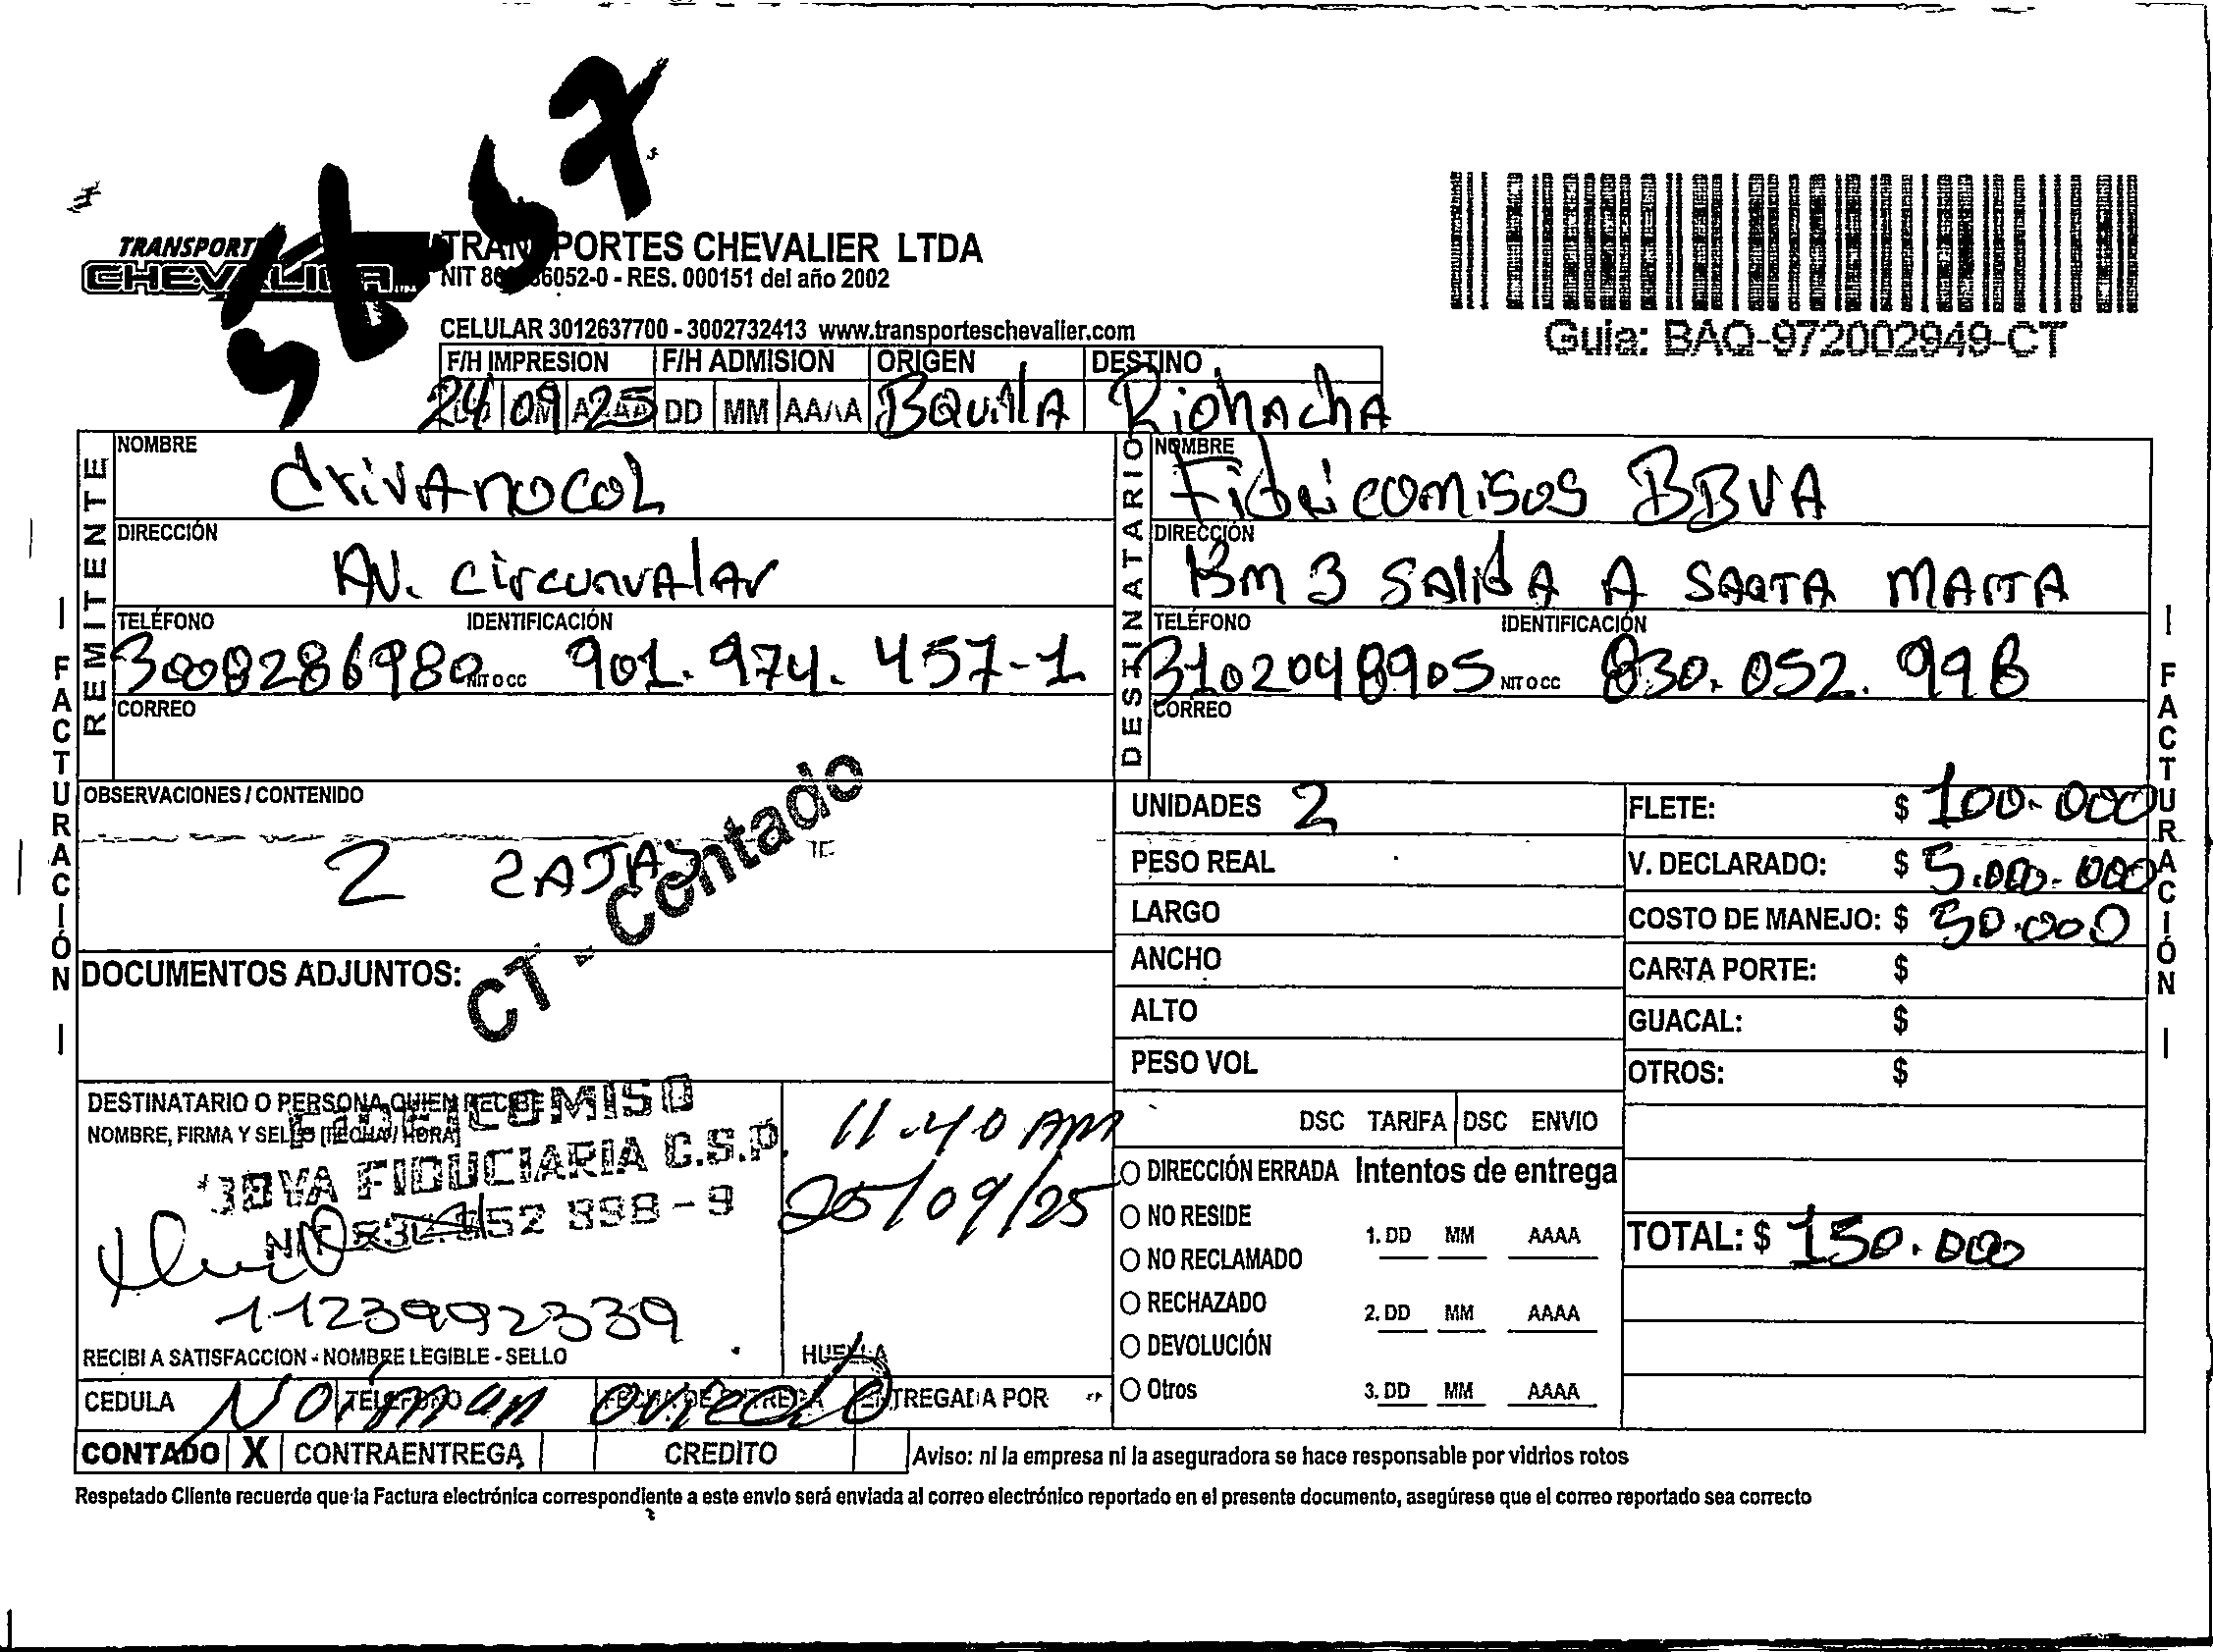 5457
TRANSPORT
CHEVALIER LTDA
TRANSPORTES CHEVALIER LTDA
6052-0 - RES. 000151 del año 2002
CELULAR 3012637700 - 3002732413 www.transporteschevalier.com
Guia: BAQ-972002949-CT
F/H IMPRESION F/H ADMISION ORIGEN DESTINO
24 09 25 DD MM AAAA BQuillA RiohAchA
REMITENTE
NOMBRE
CrivAnocol
DIRECCIÓN
AV. circunvAlAr
TELÉFONO IDENTIFICACIÓN
3008286980 NIT O CC 901.974.457-1
CORREO
DESTINATARIO
NOMBRE
Fideicomisos BBVA
DIRECCIÓN
Km 3 SAlidA A SANTA MARTA
TELÉFONO IDENTIFICACIÓN
3102048905 NIT O CC 830.052.998
CORREO
| FACTURACIÓN |
OBSERVACIONES / CONTENIDO
2 CAJAS
CT - Contado
DOCUMENTOS ADJUNTOS:
UNIDADES 2
PESO REAL
LARGO
ANCHO
ALTO
PESO VOL
DSC TARIFA DSC ENVIO
FLETE: $ 100.000
V. DECLARADO: $ 5.000.000
COSTO DE MANEJO: $ 50.000
CARTA PORTE: $
GUACAL: $
OTROS: $
TOTAL: $ 150.000
| FACTURACIÓN |
DESTINATARIO O PERSONA QUIEN RECIBE
NOMBRE, FIRMA Y SELLO [FECHA / HORA]
FIDEICOMISO
BBVA FIDUCIARIA C.S.P.
NIT 830.052 998-9
1123992339
11:40 Am
25/09/25
RECIBI A SATISFACCION - NOMBRE LEGIBLE - SELLO
HUELLA
CEDULA TELEFONO FECHA DE ENTREGA ENTREGADA POR
Norman oviedo
DIRECCIÓN ERRADA Intentos de entrega
NO RESIDE
1. DD MM AAAA
NO RECLAMADO
RECHAZADO
2. DD MM AAAA
DEVOLUCIÓN
Otros
3. DD MM AAAA
CONTADO X CONTRAENTREGA CREDITO
Aviso: ni la empresa ni la aseguradora se hace responsable por vidrios rotos
Respetado Cliente recuerde que la Factura electrónica correspondiente a este envio será enviada al correo electrónico reportado en el presente documento, asegúrese que el correo reportado sea correcto